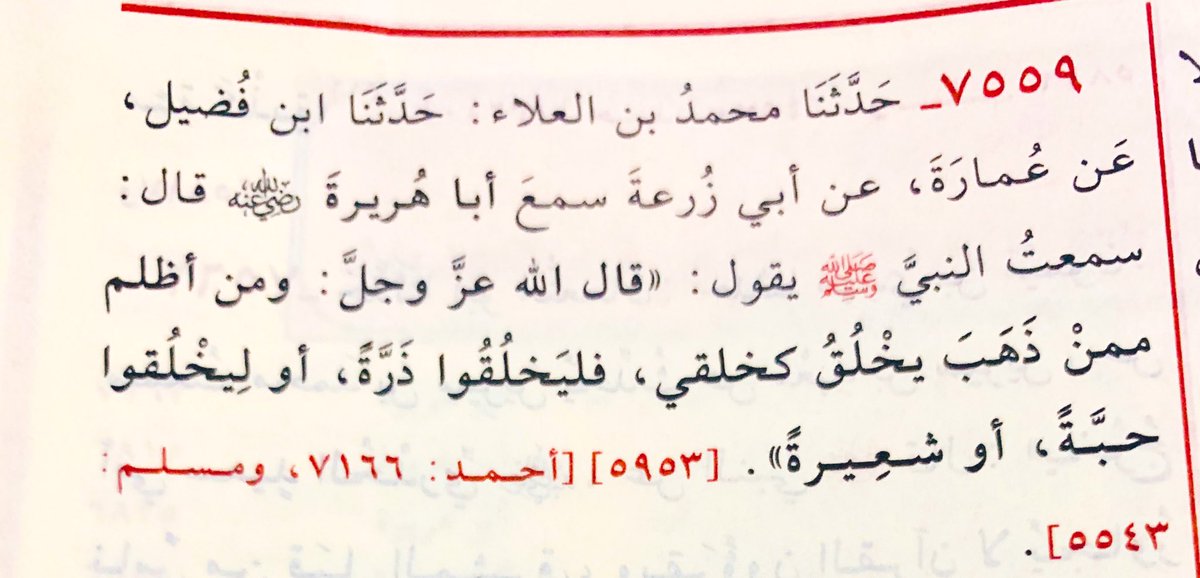 ٧٥٥٩ـ حَدَّثَنَا محمدُ بن العلاء: حَدَّثَنَا ابن فُضيل،
عَن عُمارَةَ، عن أبي زُرعةَ سمعَ أبا هُريرةَ رضي الله عنه قال:
سمعتُ النبيَّ ﷺ يقول: «قال الله عزَّ وجلَّ: ومن أظلم
ممنْ ذَهَبَ يخْلُقُ كخلقي، فليَخلُقُوا ذَرَّةً، أو لِيخْلُقوا
حبَّةً، أو شعِيرةً». [٥٩٥٣] [أحمد: ٧١٦٦، ومسلم:
٥٥٤٣].